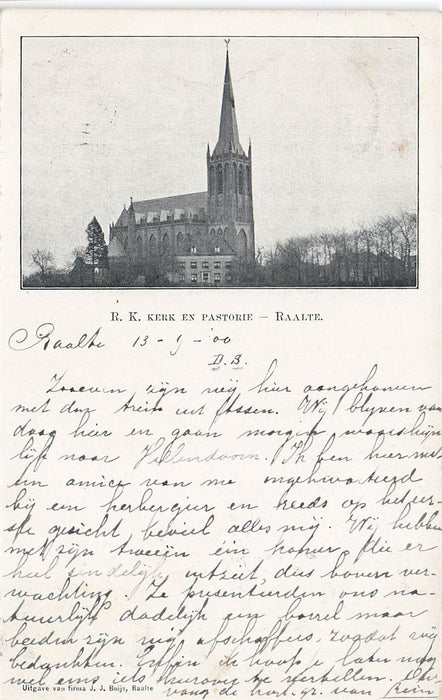 R. K. KERK EN PASTORIE — RAALTE.
Raalte 13-9-00
D.B.
Zooeven zijn wij hier aangekomen
met den trein uit Assen. Wij blijven van
daag hier en gaan morgen waarschijn
lijk naar Hellendoorn. Ik ben hier met
een amice van me ingekwartierd
bij een herbergier en reeds op het eer-
ste gezicht beviel alles mij. Wij hebben
met zijn tweeën één kamer die er
heel zindelijk uitziet, dus boven ver-
wachting. Ze presenteerden ons na-
tuurlijk dadelijk een borrel maar
beiden zijn wij afschaffers, zoodat wij
bedankten. Enfin ik hoop u later nog
wel eens iets hierover te vertellen.
Uitgave van firma J. J. Buijs, Raalte